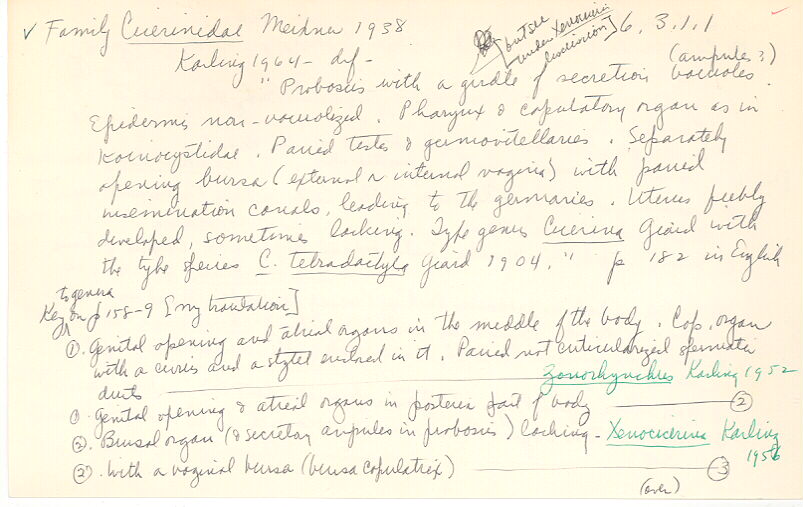 ✓ Family Cicerinidae Meixner 1938
but see under Xenocicerina discussion] 6.3.1.1
Karling 1964 - def -
(ampules?)
"Proboscis with a girdle of secretion vacuoles.
Epidermis non-vacuolized. Pharynx & copulatory organ as in
Koinocystidae. Paired testes & germovitellaries. Separately
opening bursa (external or internal vagina) with paired
insemination canals, leading to the germaries. Uterus feebly
developed, sometimes lacking. Type genus Cicerina Giard with
the type species C. tetradactyla Giard 1904." p 182 in English
to genera
Key on p 158-9 [my translation]
①. Genital opening and atrial organs in the middle of the body. Cop. organ
with a cirrus and a stylet enclosed in it. Paired not cuticularized spermatic
ducts Zonorhynchus Karling 1952
①. Genital opening & atrial organs in posterior part of body ②
②. Bursal organ (& secretory ampules in proboscis) lacking - Xenocicerina Karling
1956
②'. With a vaginal bursa (bursa copulatrix) ③
(over)